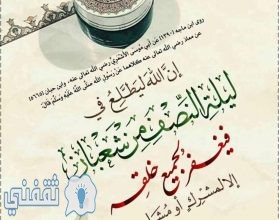 روى ابن ماجه (١٣٩٠) عن أبي موسى الأشعري رضي الله تعالى عنه، وابن حبان (٥٦٦٥)
عن معاذ رضي الله تعالى عنه كلاهما عن رسول الله صلى الله عليه وسلم قال:
إن الله ليطلع في
ليلة النصف من شعبان
فيغفر لجميع خلقه
إلا لمشرك أو
ثقفني